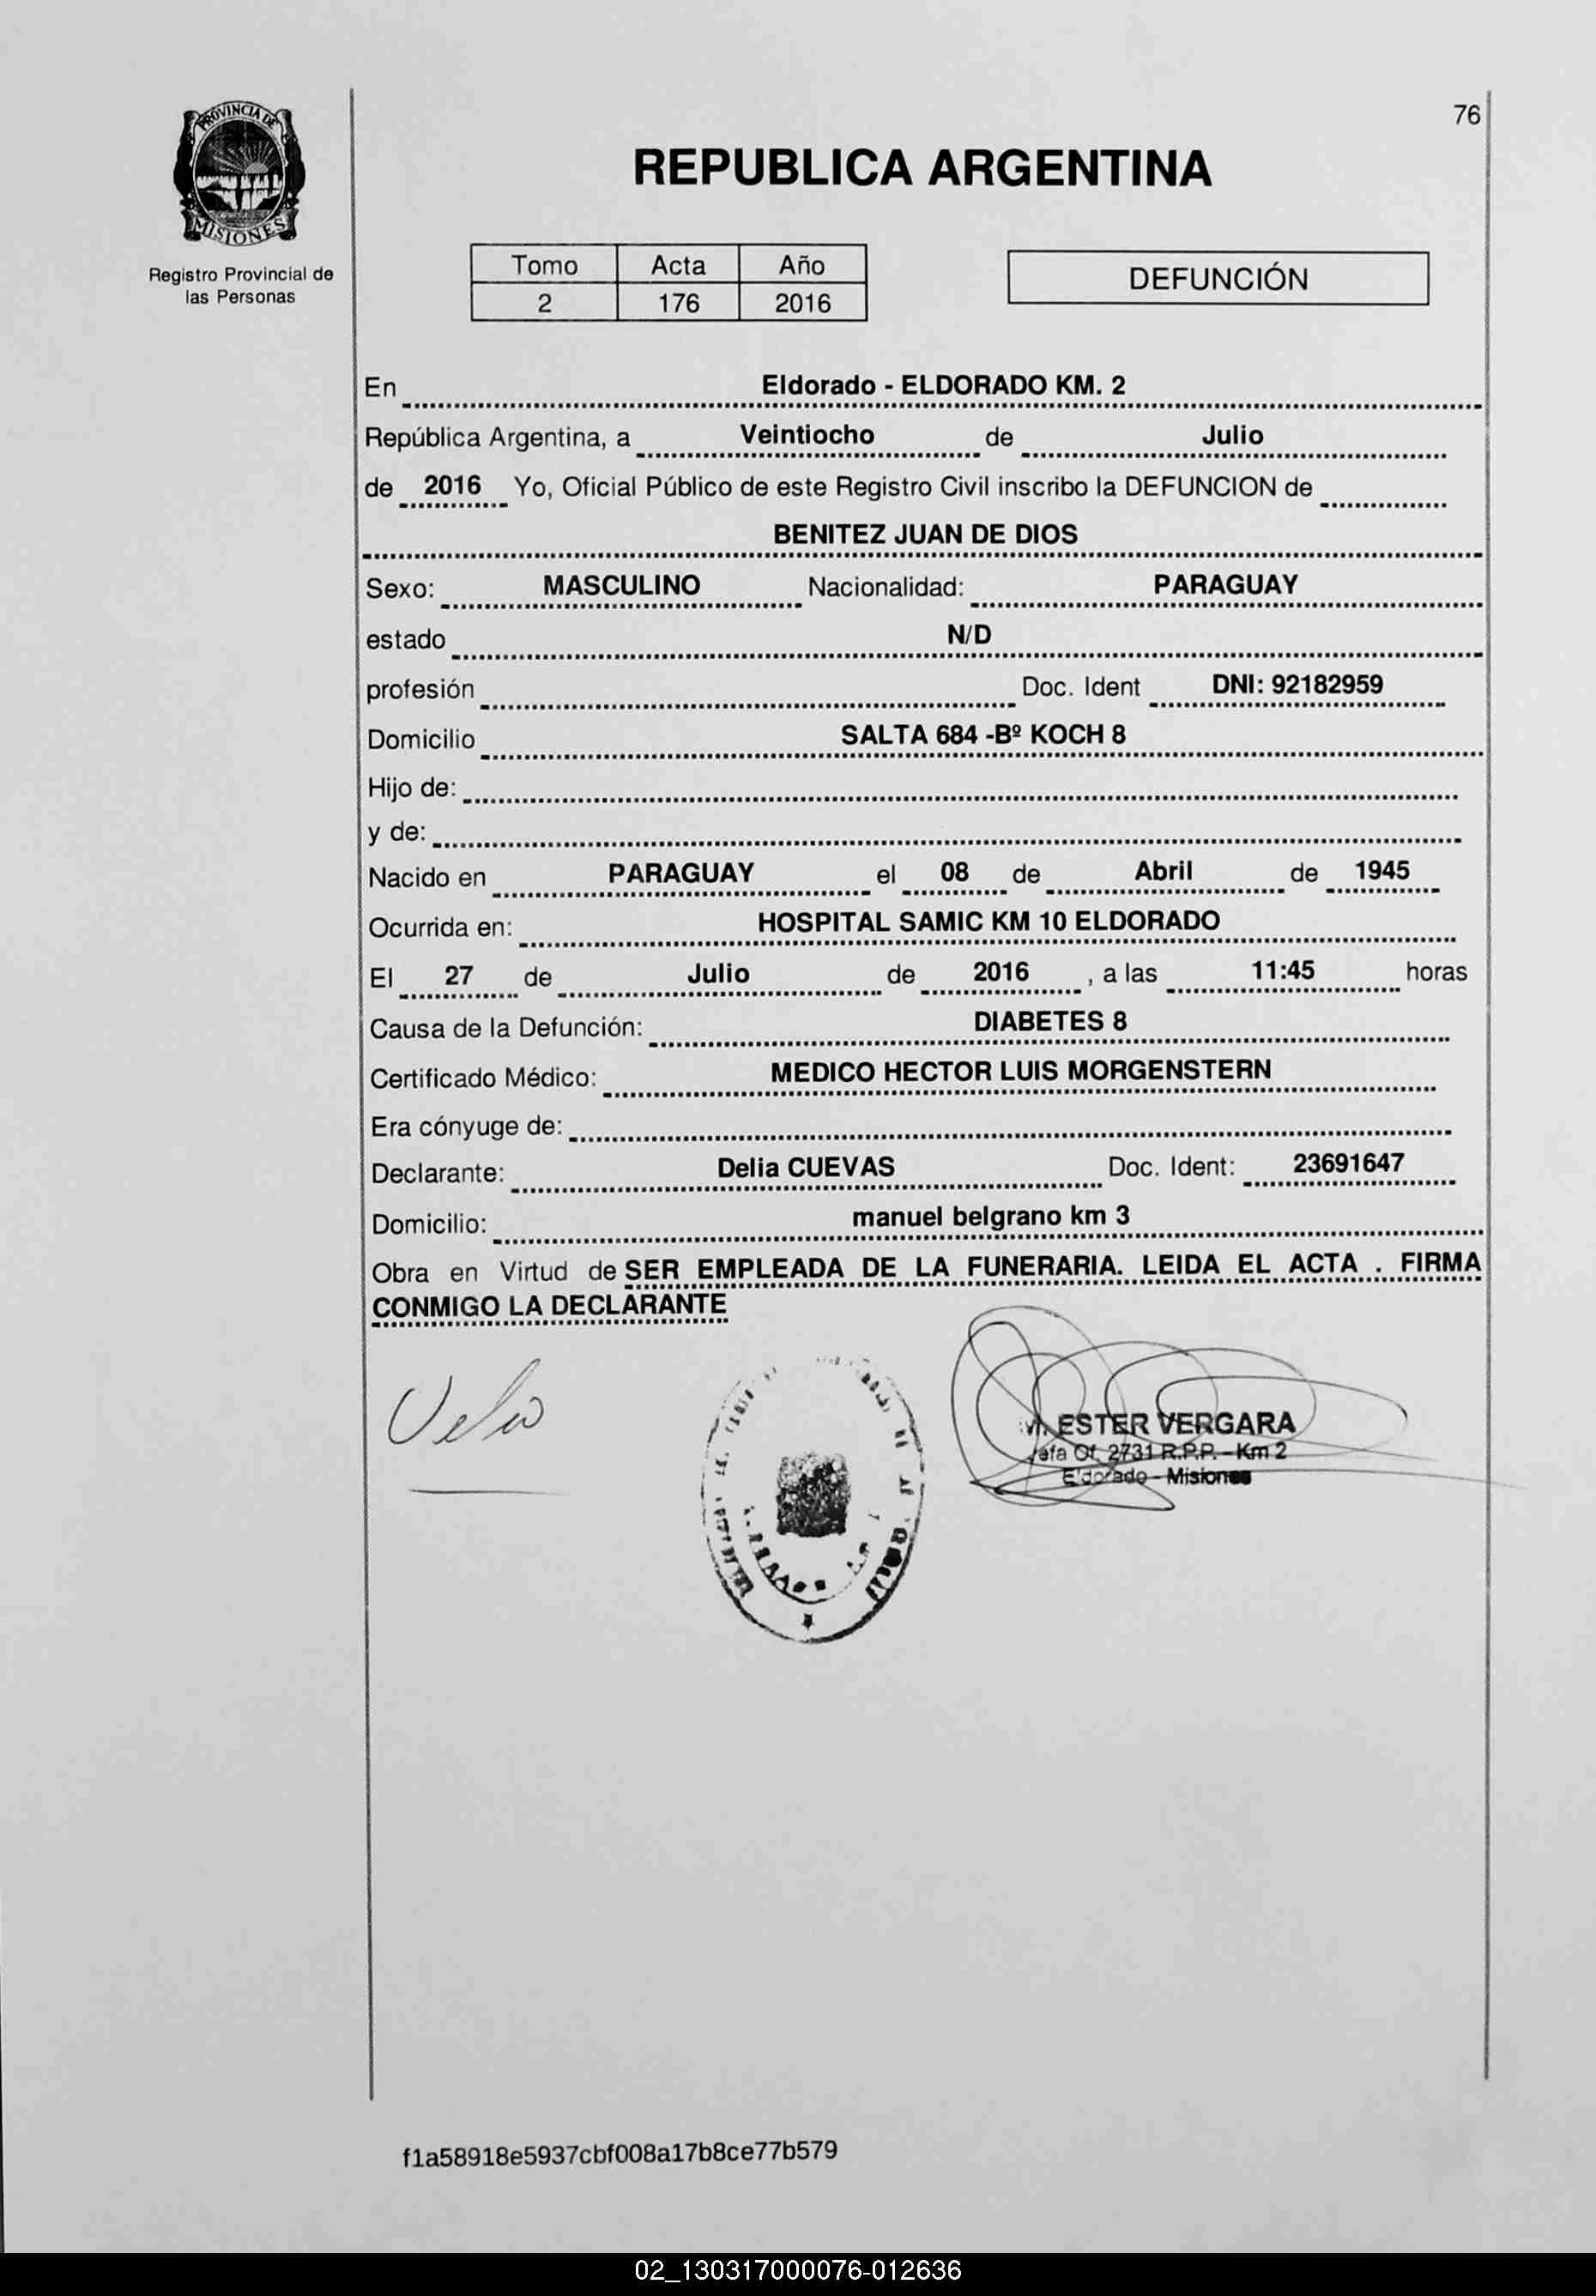 76
PROVINCIA DE
MISIONES
Registro Provincial de
las Personas
REPUBLICA ARGENTINA
Tomo Acta Año
2 176 2016
DEFUNCIÓN
En Eldorado - ELDORADO KM. 2
República Argentina, a Veintiocho de Julio
de 2016 Yo, Oficial Público de este Registro Civil inscribo la DEFUNCION de
BENITEZ JUAN DE DIOS
Sexo: MASCULINO Nacionalidad: PARAGUAY
estado N/D
profesión Doc. Ident DNI: 92182959
Domicilio SALTA 684 -Bº KOCH 8
Hijo de:
y de:
Nacido en PARAGUAY el 08 de Abril de 1945
Ocurrida en: HOSPITAL SAMIC KM 10 ELDORADO
El 27 de Julio de 2016 , a las 11:45 horas
Causa de la Defunción: DIABETES 8
Certificado Médico: MEDICO HECTOR LUIS MORGENSTERN
Era cónyuge de:
Declarante: Delia CUEVAS Doc. Ident: 23691647
Domicilio: manuel belgrano km 3
Obra en Virtud de SER EMPLEADA DE LA FUNERARIA. LEIDA EL ACTA . FIRMA
CONMIGO LA DECLARANTE
M. ESTER VERGARA
Jefa Of. 2731 R.P.P. - Km 2
Eldorado - Misiones
f1a58918e5937cbf008a17b8ce77b579
02_130317000076-012636